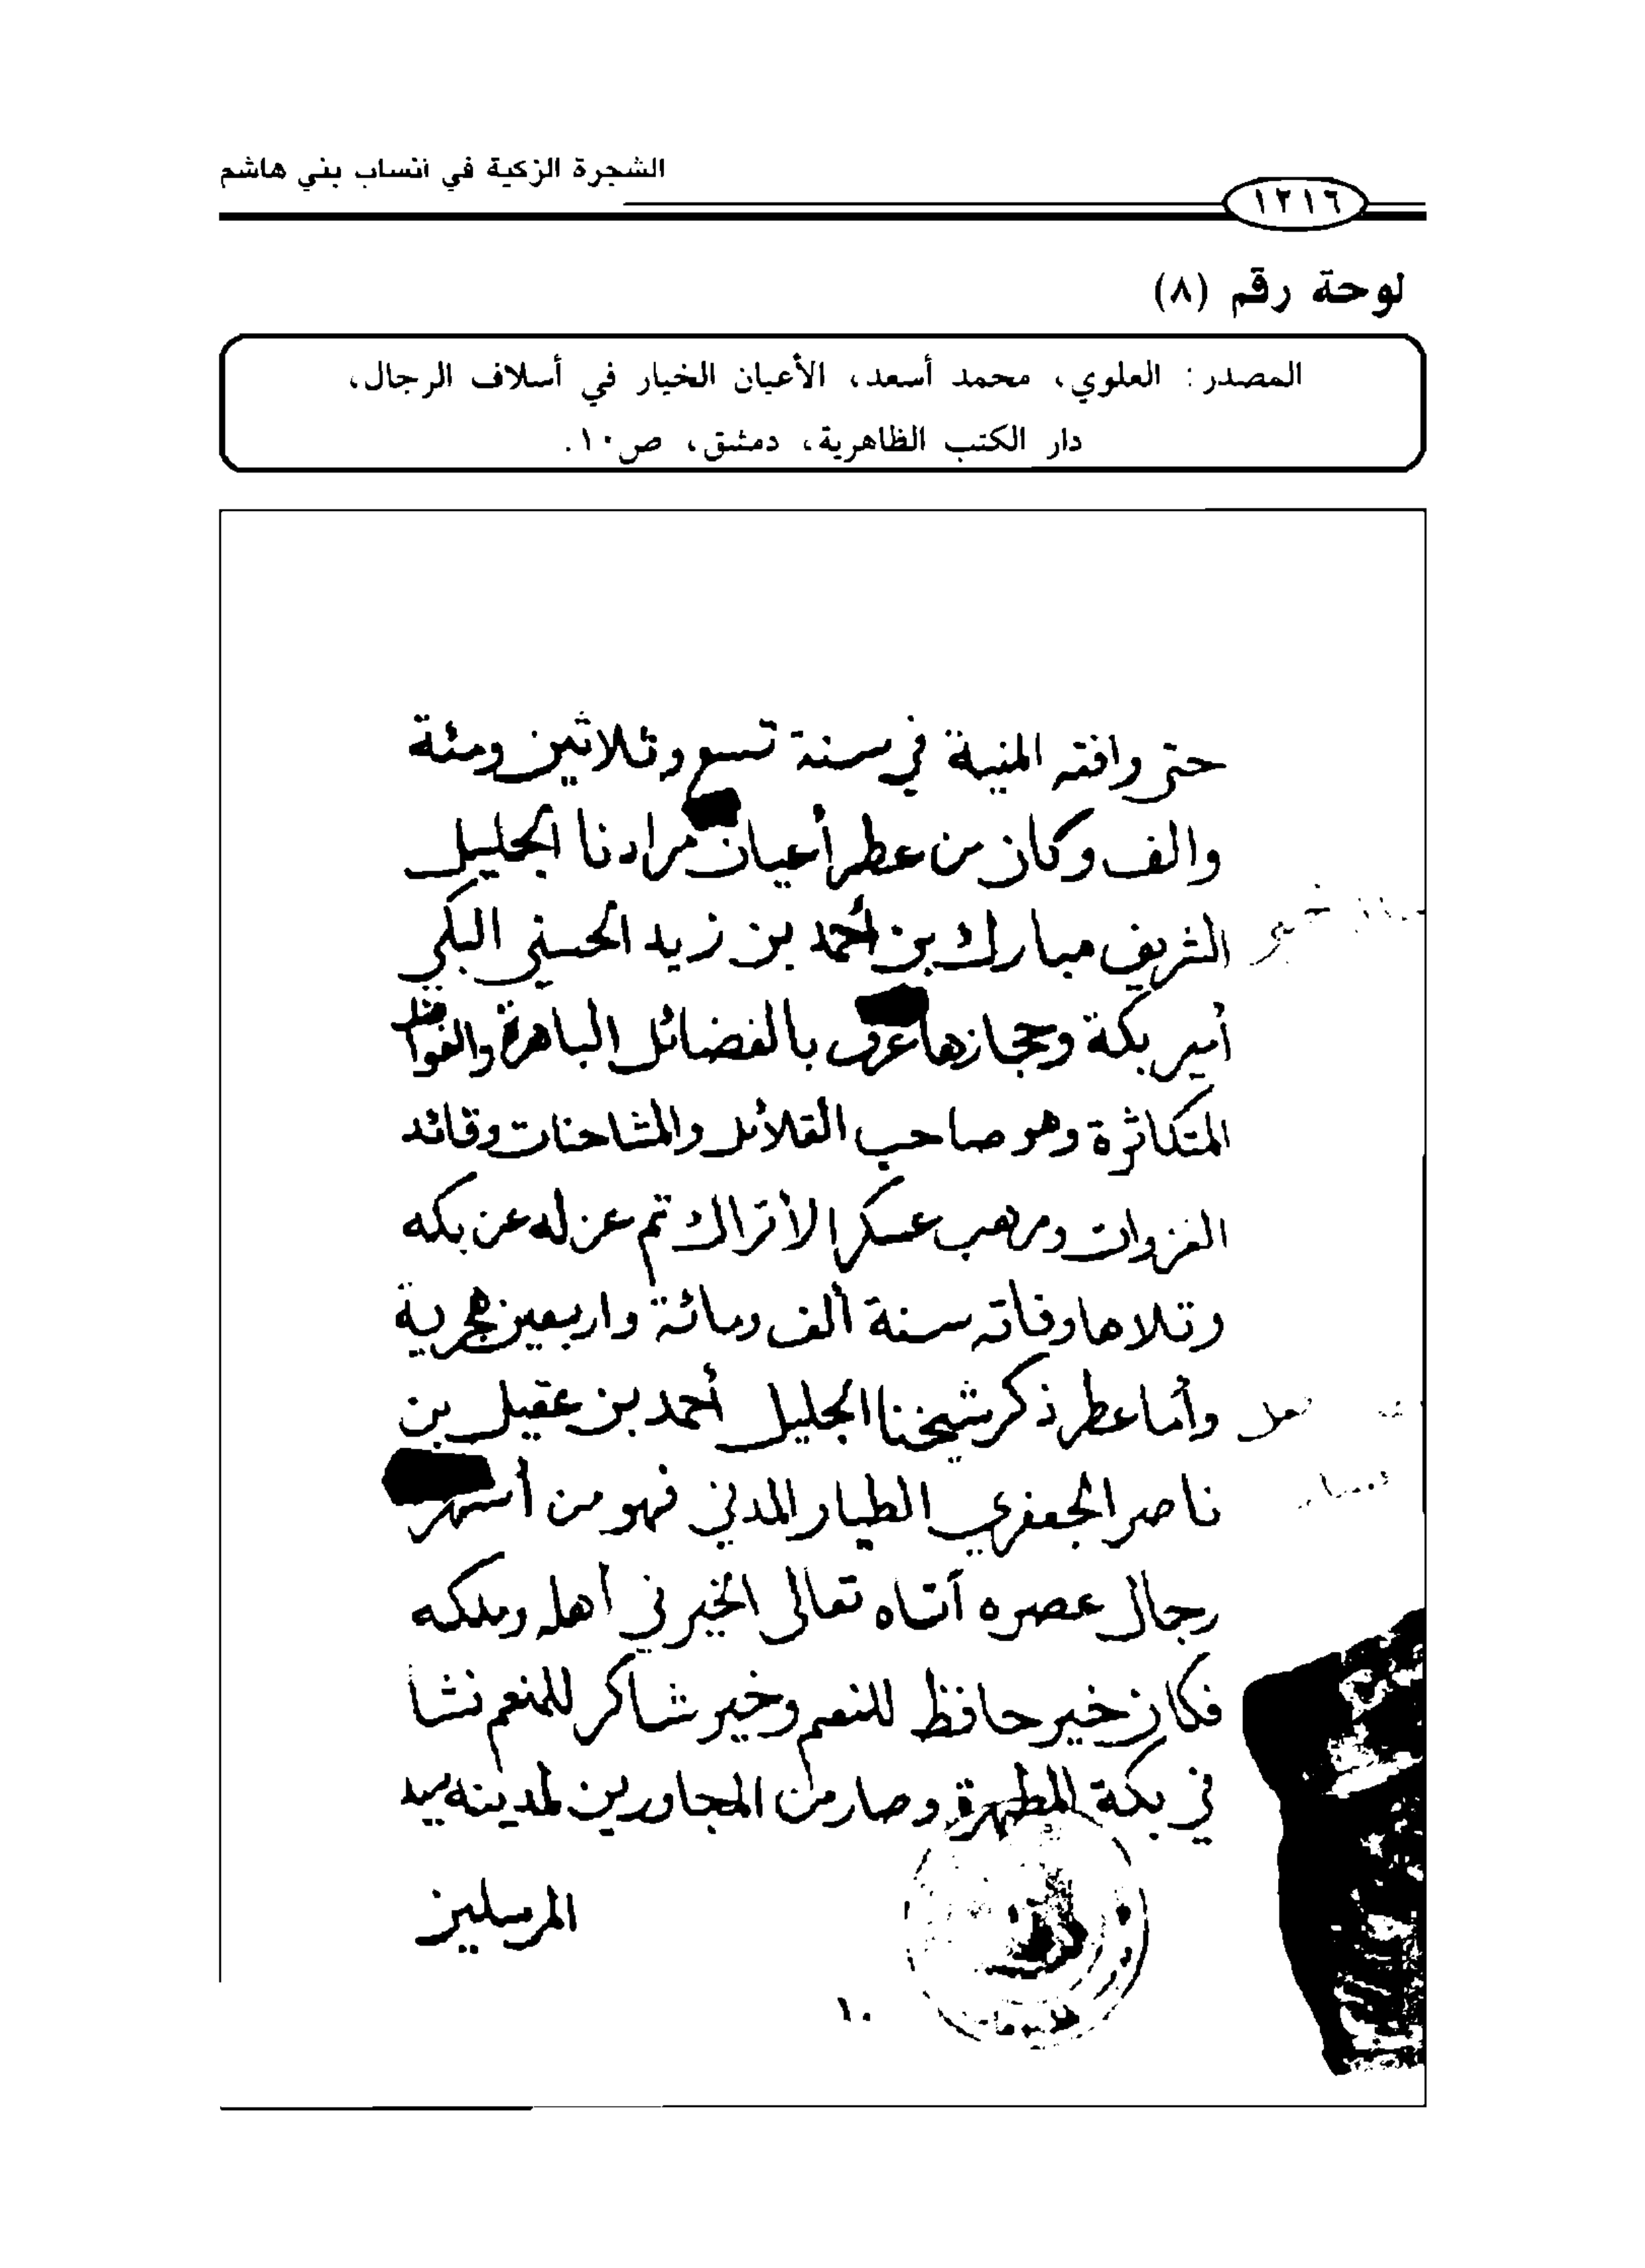 الشجرة الزكية في انساب بني هاشم
١٢١٦
لوحة رقم (٨)
المصدر: العلوي، محمد أسعد، الأعيان الخيار في أسلاف الرجال،
دار الكتب الظاهرية، دمشق، ص١٠.
حتى وافته المنية في سنة تسع وثلاثين ومئة
والف وكان من عطر أعيان مرادنا الجليل
الشريف مبارك بن أحمد بن زيد الحسني البكي
أمير بكة وحجازها عرف بالفضائل الباهرة والفواضل
المتكاثرة وهو صاحب القلائل والمشاحنات وقائد
الغزوات ومرهب عسكر الأتراك تم عزله عن بكه
وتلاها وفاته سنة ألف ومائة واربعين هجرية
وأما عطر ذكر شيخنا الجليل أحمد بن عقيل بن
ناصر الجعفري الطيار المدني فهو من أشهر
رجال عصره آتاه تعالى الخير في أهله وملكه
فكان خير حافظ للنعم وخير شاكر للمنعم نشا
في بكة المطهرة وصار من المجاورين لمدينه سيد
المرسلين
١٠